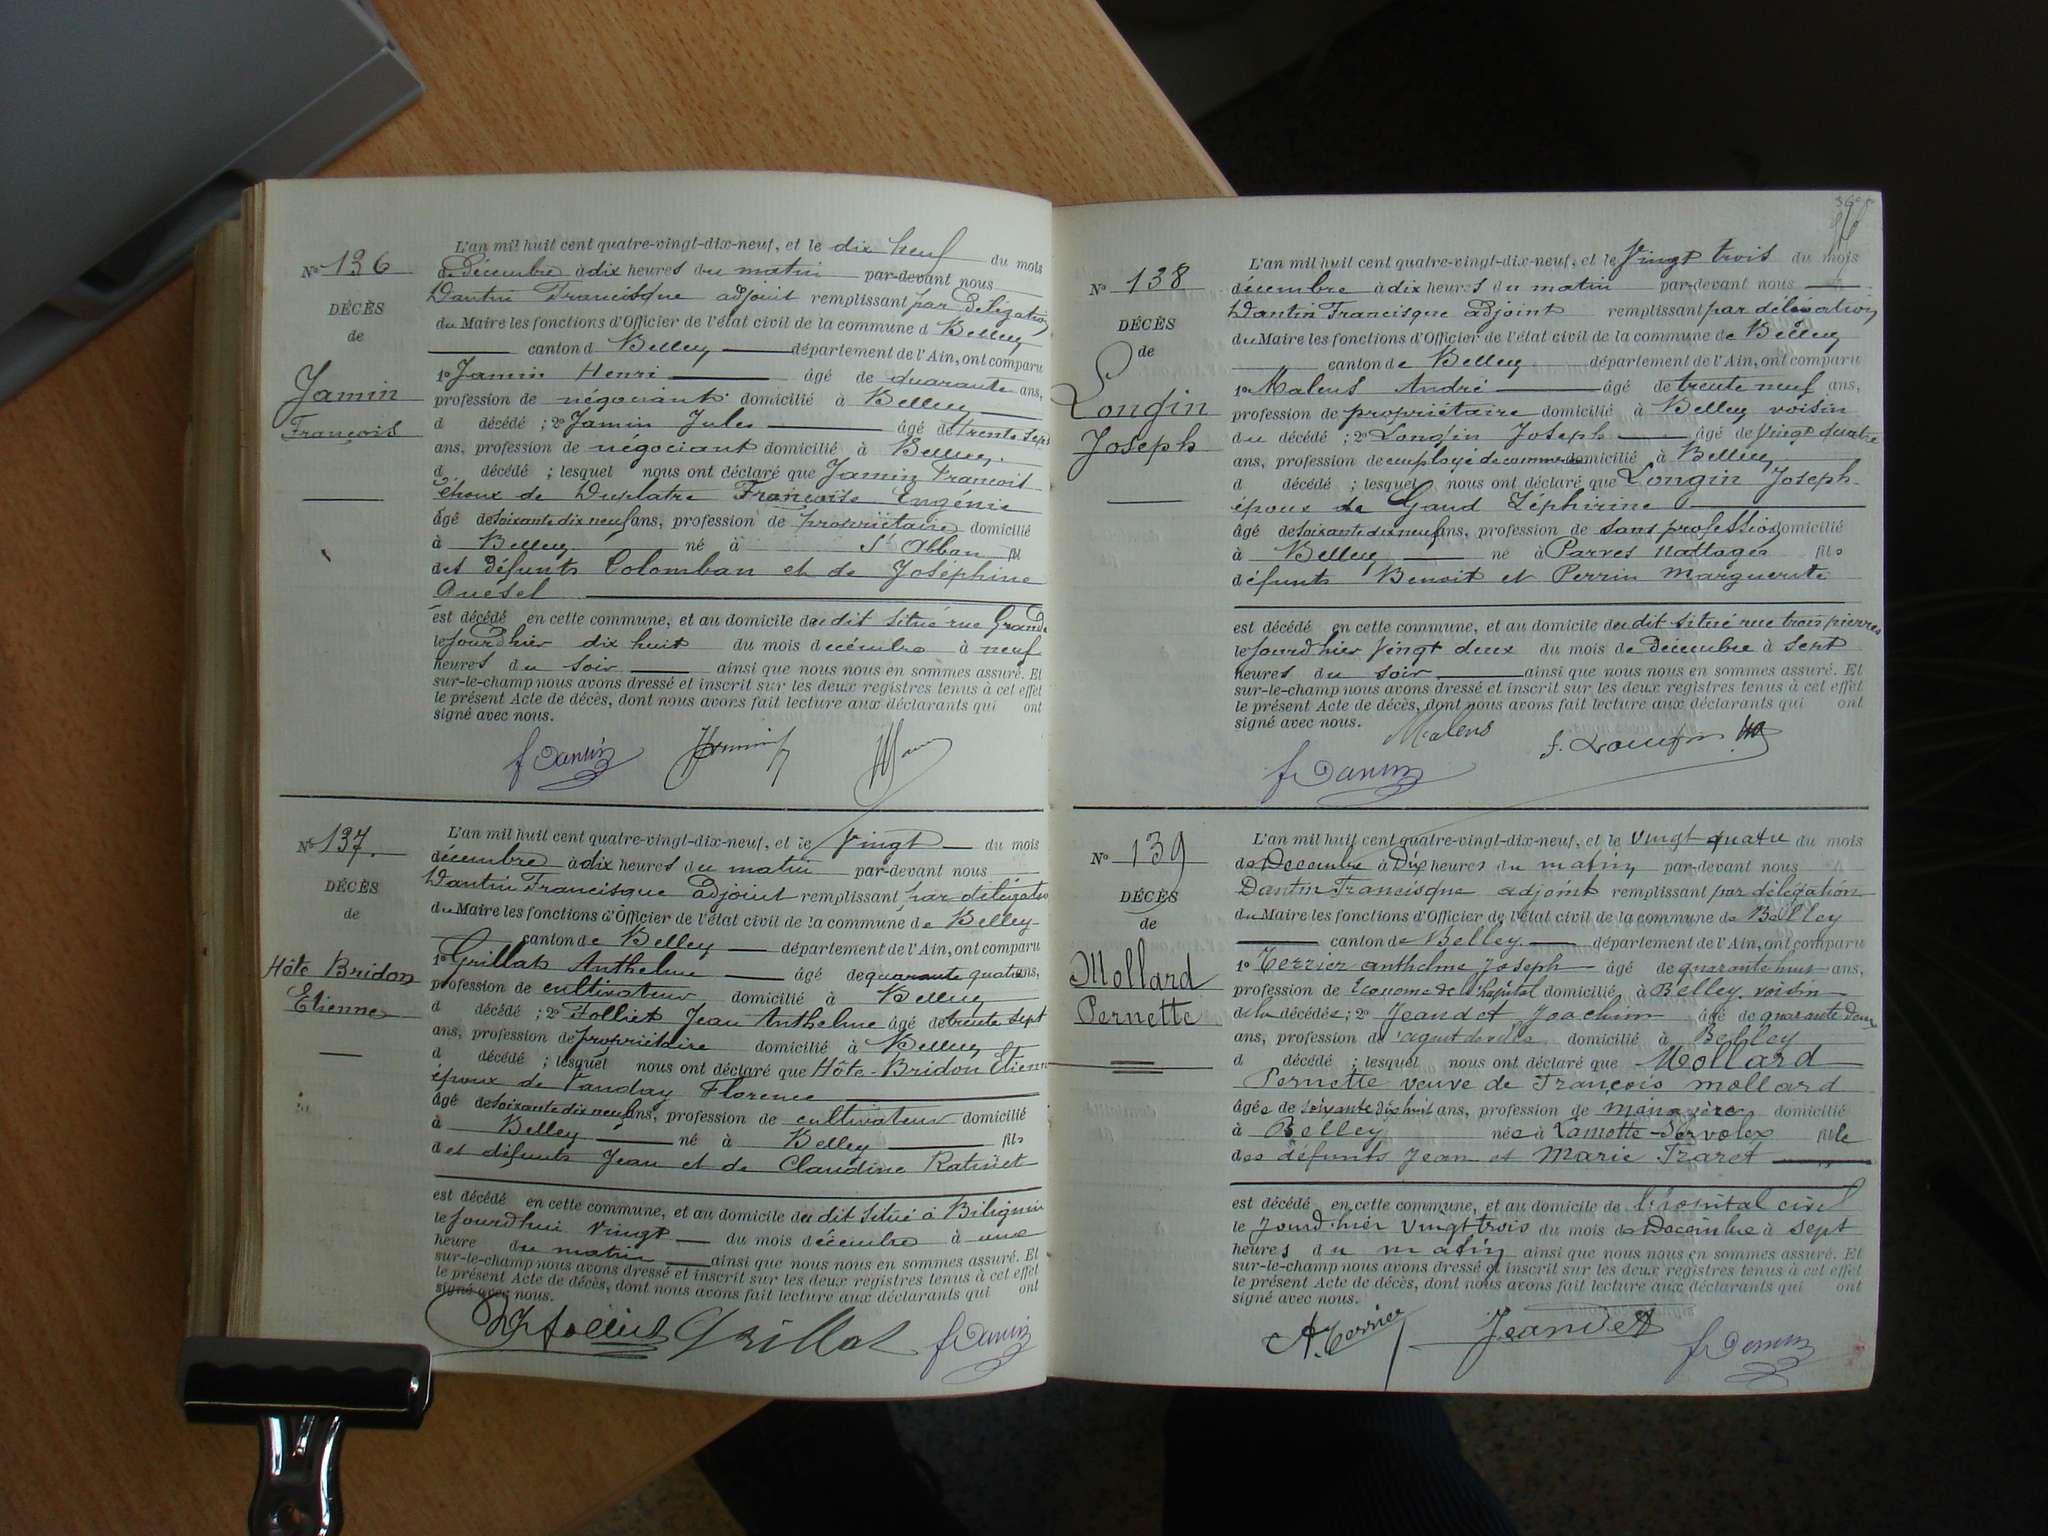 L'an mil huit cent quatre-vingt-dix-neuf, et le dix neuf du mois
No 136
de Décembre à dix heures du matin par-devant nous
Dantin Francisque adjoint remplissant par Délégation
DÉCÈS
du Maire les fonctions d'Officier de l'état civil de la commune d Belley
de
canton d Belley département de l'Ain, ont comparu
1o Jamin Henri âgé de quarante ans,
Jamin
profession de négociant domicilié à Belley
François
d décédé ; 2o Jamin Jules âgé de trente sept
ans, profession de négociant domicilié à Belley
d décédé ; lesquel nous ont déclaré que Jamin François
époux de Duplatre Françoise Eugénie
âgé de soixante dix neuf ans, profession de propriétaire domicilié
à Belley né à St Alban fil
des défunts Colomban et de Joséphine
est décédé en cette commune, et au domicile du dit situé rue Grande
le jourd'hier dix huit du mois décembre à neuf
heures du soir ainsi que nous nous en sommes assuré. Et
sur-le-champ nous avons dressé et inscrit sur les deux registres tenus à cet effet
le présent Acte de décès, dont nous avons fait lecture aux déclarants qui ont
signé avec nous.
f Dantin Jamin
L'an mil huit cent quatre-vingt-dix-neuf, et le Vingt du mois
No 137.
décembre à dix heures du matin par-devant nous
Dantin Francisque adjoint remplissant par délégation
DÉCÈS
du Maire les fonctions d'Officier de l'état civil de la commune de Belley
de
canton de Belley département de l'Ain, ont comparu
1o Grillat Anthelme âgé de quarante quatre ans,
Hôte Bridon
profession de cultivateur domicilié à Belley
Etienne
d décédé ; 2o Folliet Jean Anthelme âgé de trente sept
ans, profession de propriétaire domicilié à Belley
d décédé ; lesquel nous ont déclaré que Hôte-Bridon Etienne
époux de Vauday Florence
âgé de soixante dix neuf ans, profession de cultivateur domicilié
à Belley né à Belley fils
des défunts Jean et de Claudine
est décédé en cette commune, et au domicile du dit situé à Bilignin
le jourd'hui vingt du mois décembre à une
heure du matin ainsi que nous nous en sommes assuré. Et
sur-le-champ nous avons dressé et inscrit sur les deux registres tenus à cet effet
le présent Acte de décès, dont nous avons fait lecture aux déclarants qui ont
signé avec nous.
Grillat f Dantin
L'an mil huit cent quatre-vingt-dix-neuf, et le Vingt trois du mois
No 138
décembre à dix heures du matin par-devant nous
Dantin Francisque adjoint remplissant par délégation
DÉCÈS
du Maire les fonctions d'Officier de l'état civil de la commune de Belley
de
canton de Belley département de l'Ain, ont comparu
1o Malens André âgé de trente neuf ans,
Longin
profession de propriétaire domicilié à Belley voisin
Joseph
du décédé ; 2o Longin Joseph âgé de vingt quatre
ans, profession de employé de commerce domicilié à Belley
d décédé ; lesquel nous ont déclaré que Longin Joseph
époux de Gaud Zéphirine
âgé de soixante dix neuf ans, profession de sans profession domicilié
à Belley né à Parves Nattages fils
défunts Benoit et Perrin Marguerite
est décédé en cette commune, et au domicile du dit situé rue trois pierres
le jourd'hier vingt deux du mois de Décembre à sept
heures du soir ainsi que nous nous en sommes assuré. Et
sur-le-champ nous avons dressé et inscrit sur les deux registres tenus à cet effet
le présent Acte de décès, dont nous avons fait lecture aux déclarants qui ont
signé avec nous.
Malens J. Longin
f Dantin
L'an mil huit cent quatre-vingt-dix-neuf, et le vingt quatre du mois
No 139
de Décembre à Dix heures du matin par-devant nous
Dantin Francisque adjoint remplissant par délégation
DÉCÈS
du Maire les fonctions d'Officier de l'état civil de la commune de Belley
de
canton de Belley département de l'Ain, ont comparu
1o Terrier anthelme Joseph âgé de quarante huit ans,
Mollard
profession de Econome de l'hôpital domicilié à Belley voisin
Pernette
de la décédée ; 2o Jeandet Joachim âgé de quarante deux
ans, profession de agent de ville domicilié à Belley
d décédé ; lesquel nous ont déclaré que Mollard
Pernette veuve de François mollard
âgée de soixante dix huit ans, profession de ménagère domicilié
à Belley née à Lamotte-Servolex fille
des défunts Jean et Marie Traret
est décédé en cette commune, et au domicile de l'hôpital civil
le jourd'hier vingt trois du mois de Décembre à sept
heures du matin ainsi que nous nous en sommes assuré. Et
sur-le-champ nous avons dressé et inscrit sur les deux registres tenus à cet effet
le présent Acte de décès, dont nous avons fait lecture aux déclarants qui ont
signé avec nous.
A. Terrier Jeandet f Dantin